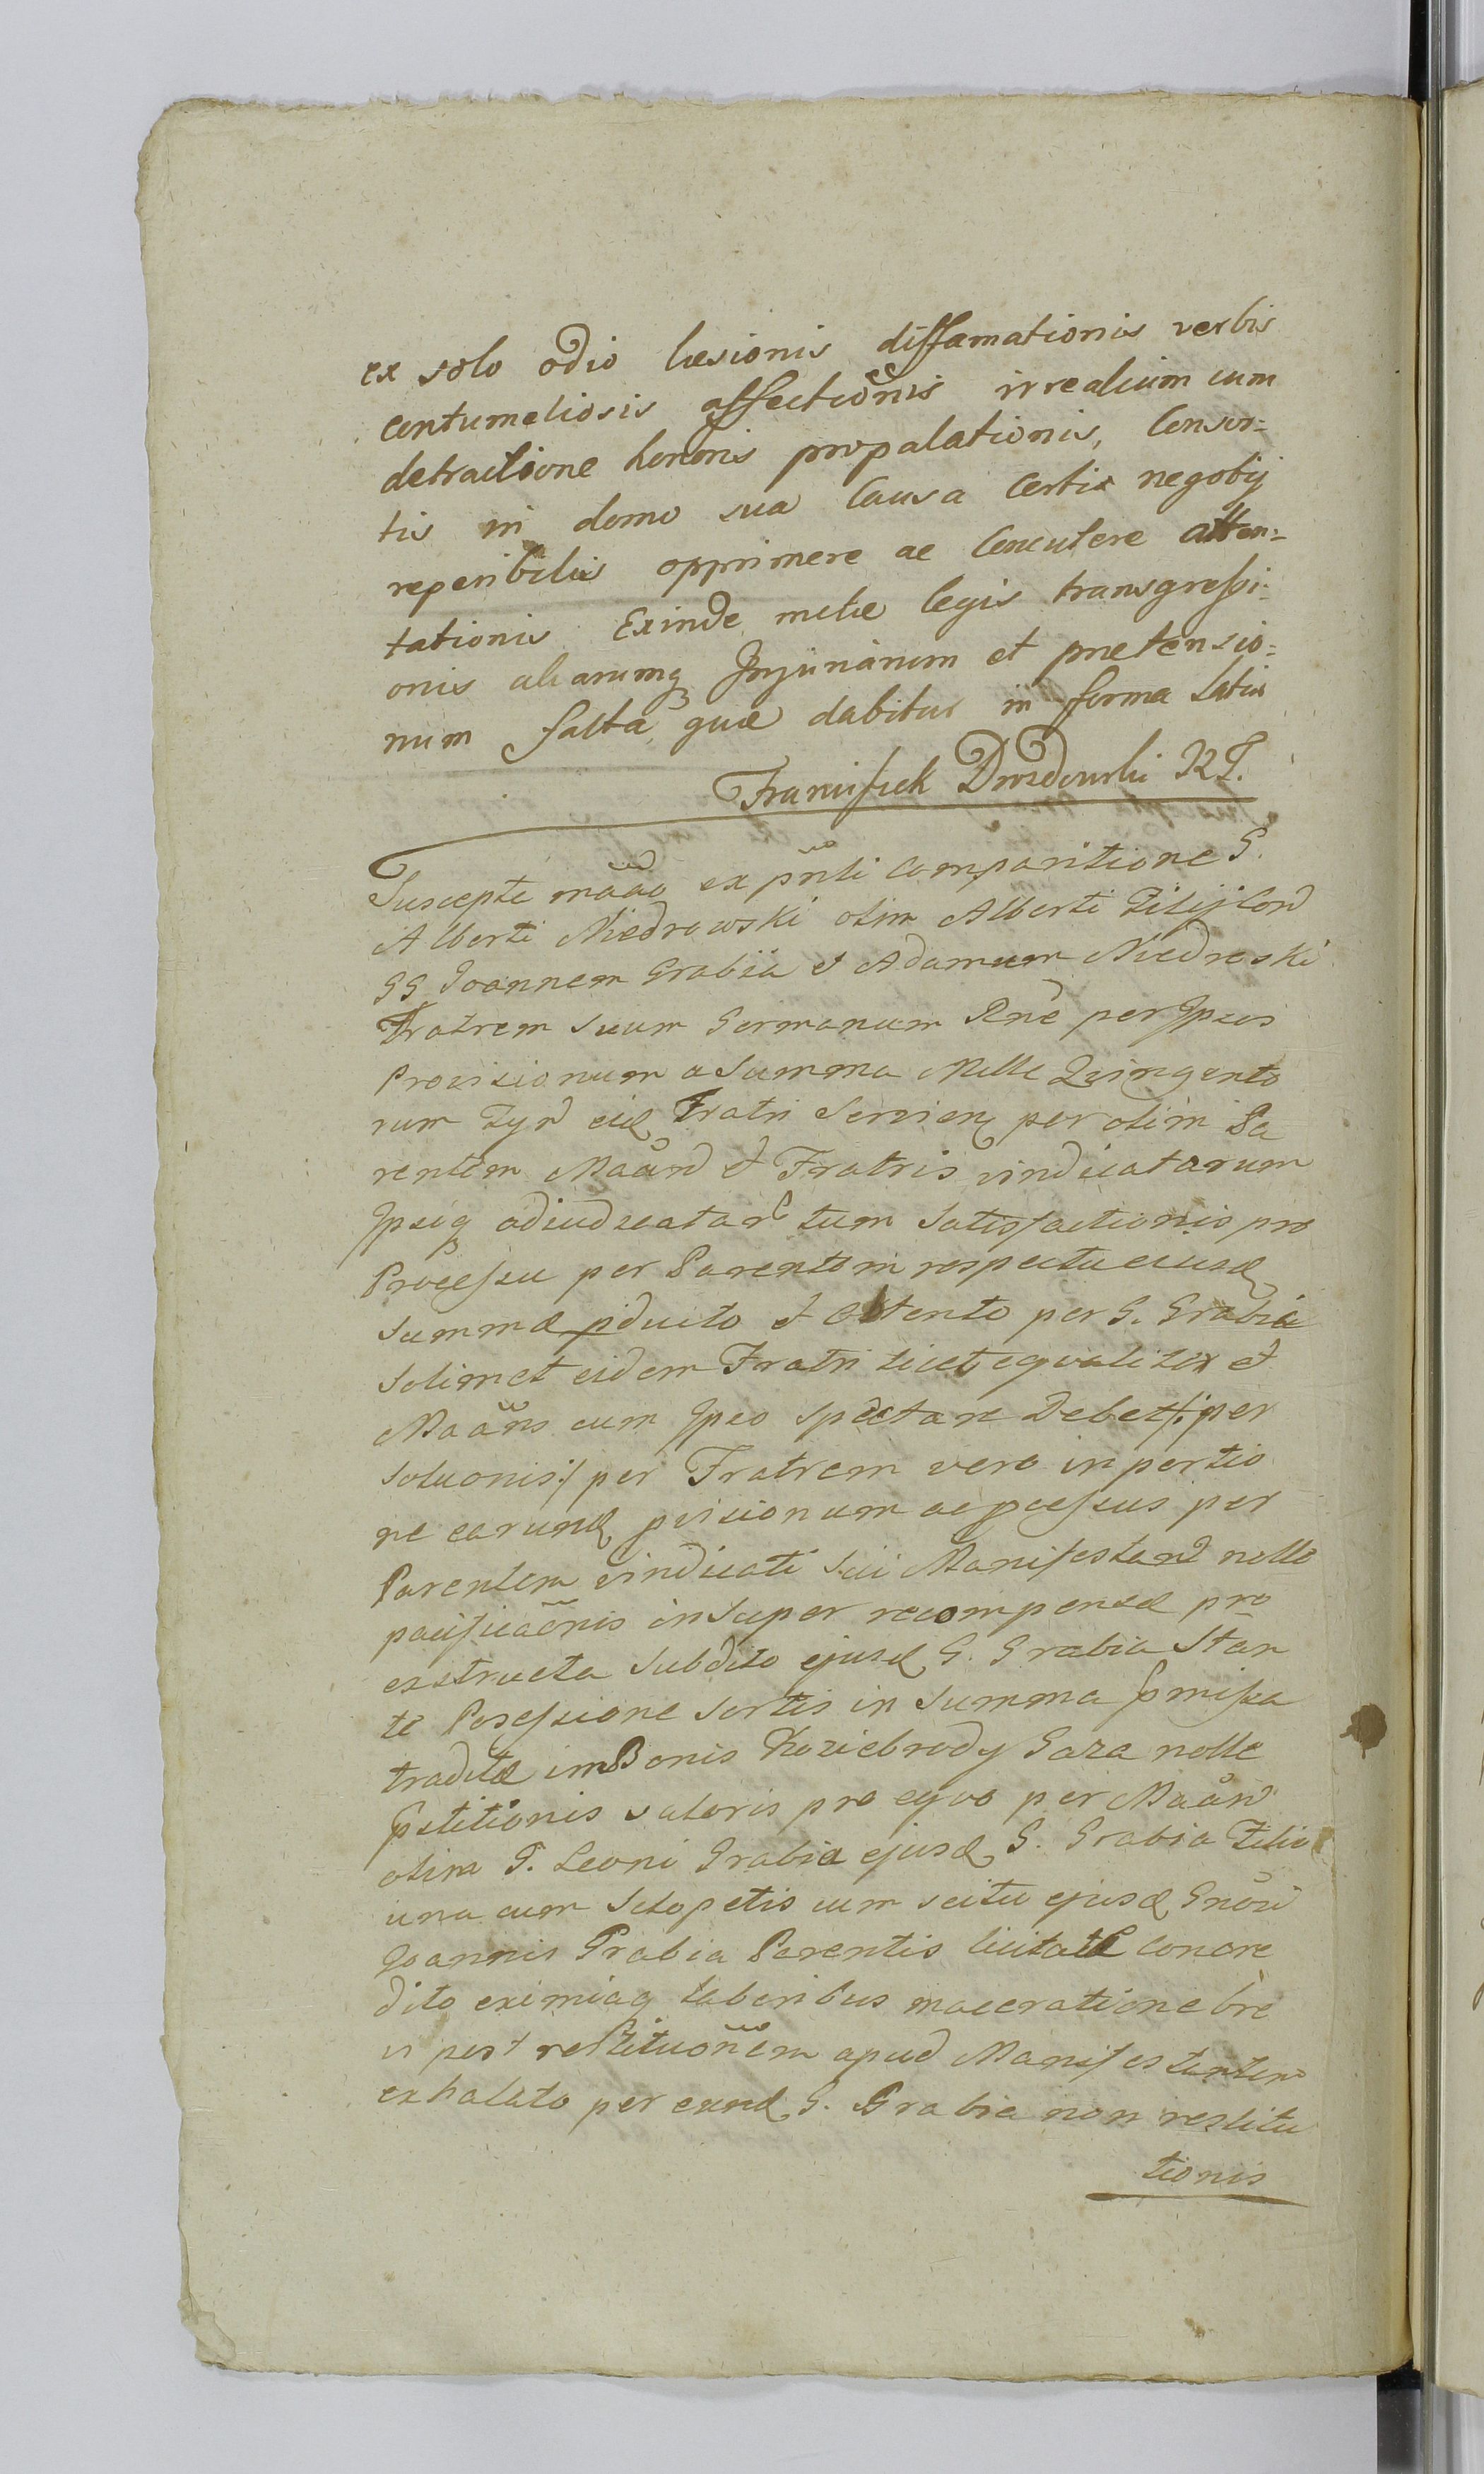 ex solo odio læsionis diffamationis verbis
contumeliosis affectionis irrealium cum
detractione honoris propalationis, Consor=
tis in domo sua Causa Certis negotij
reperibilis opprimere ac Concutere atten=
tationis Exinde metæ legis transgreſsi=
onis aliarumq Injuriarum et pretensio=
num facta, quæ dabitur in forma Latius
Franciſzek Drozdowski RG.
Suscepta mãão ex pñti Comparitione G.
Alberti Niedrowski olim Alberti Filij Cord
GG Joannem Grabia et Adamum Niedroski
Fratrem Suum Germanum Rne per Ipsos
Provisionum a Summa Mille Quingento
rum Tyn eid Fratri Servien per olim Pa
rentem Maãnd et Fratris vindicatarum
Ipsiq adiudicatar tum Satisfactionis pro
Proceſsu per Parentem respectu eiusd
Summæ pducto et Obtento per G. Grabia
Solimet eidem Fratri licet equaliter et
Maãns cum Ipso Spectare Debet /: per
Soluonis :/ per Fratrem vero in portio
ne earund pvisionum ac pceſsus per
Parentem vindicati Sui Manifestand nolle
pacificaõnis in Super recompensæ pro
exstructa Subdito ejusd G. Grabia Stan
te Poseſsione Sortis in Summa pmiſsa
traditæ im Bonis Koziebrody Gaza nolle
pstitionis valoris pro equo per Maãnd
olim G. Leoni Grabia ejusd G. Grabia Filio
una cum Sclopetis cum scitu ejusd Gnõsi
Joannis Grabia Parentis licitate concre
dito eximiaq laboribus maceratione bre
vi post reſtituõnem apud Manifestantem
exhalato per eund G. Grabia non restitu
tionis